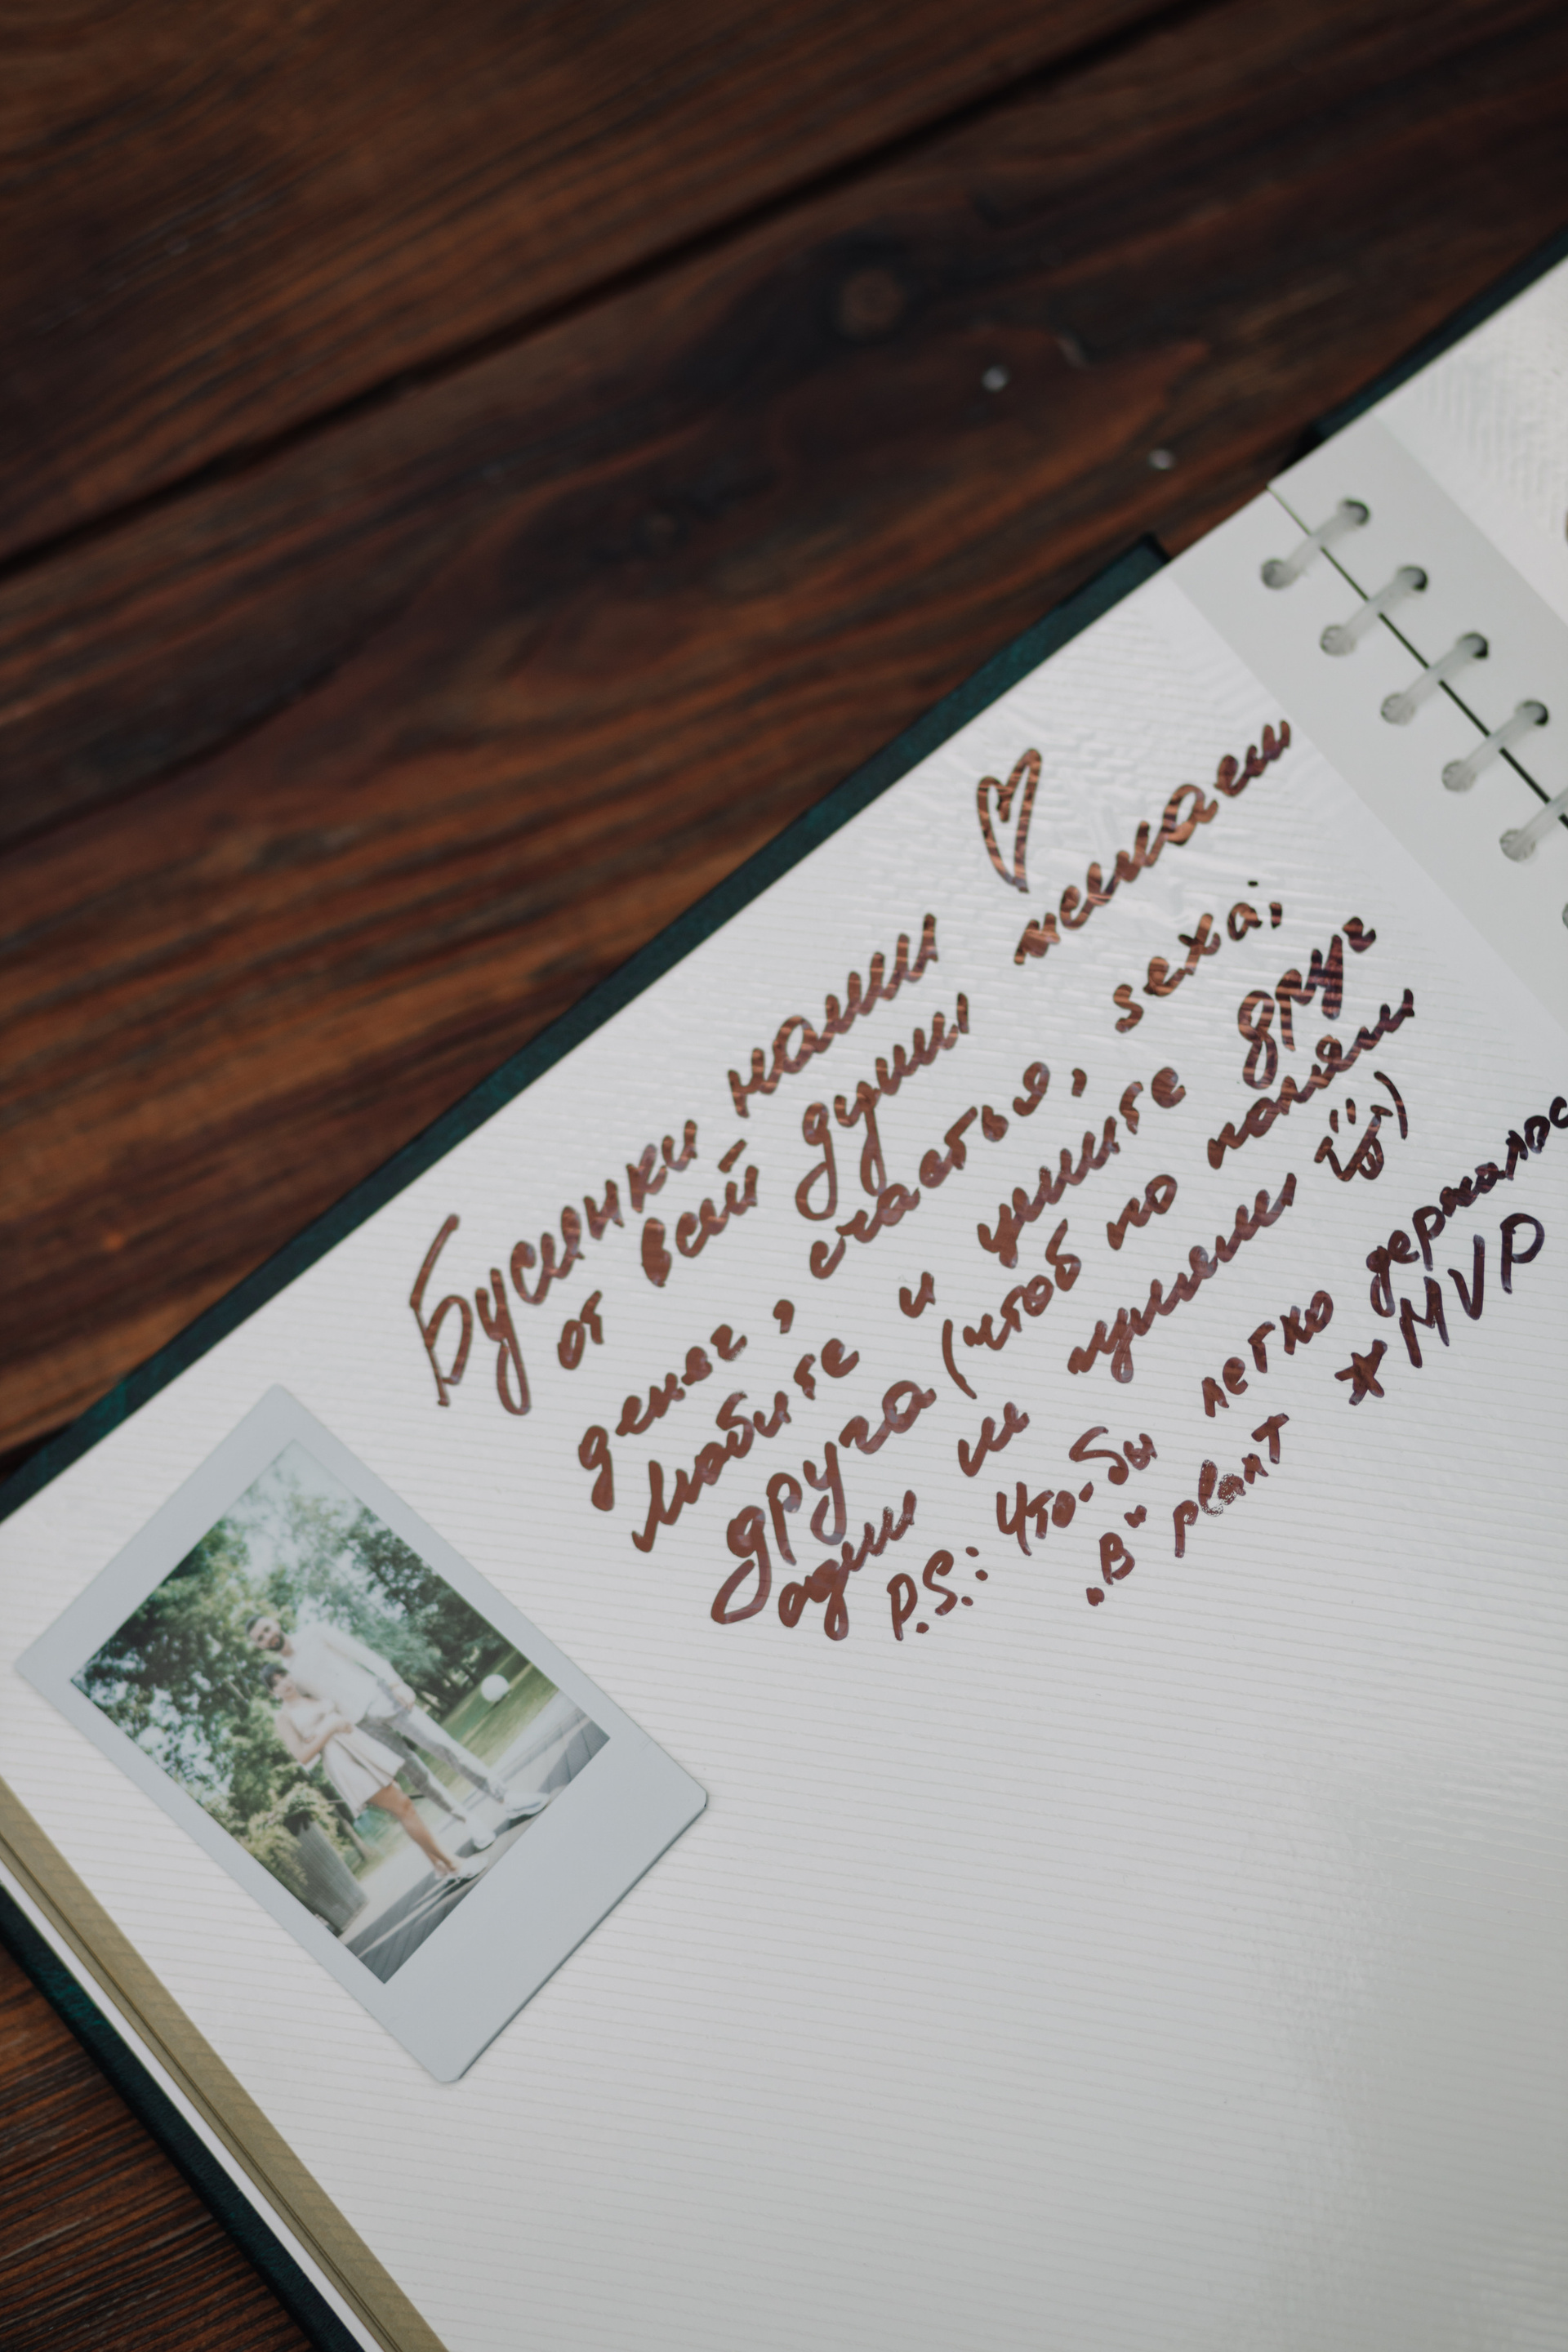 Бусинки наши ♡
от всей души желаем
денег, счастья, sexa,
любите и цените друг
друга (чтоб по полям
один не
P.S.: что-бы легко держалось
„В" plант *MVP